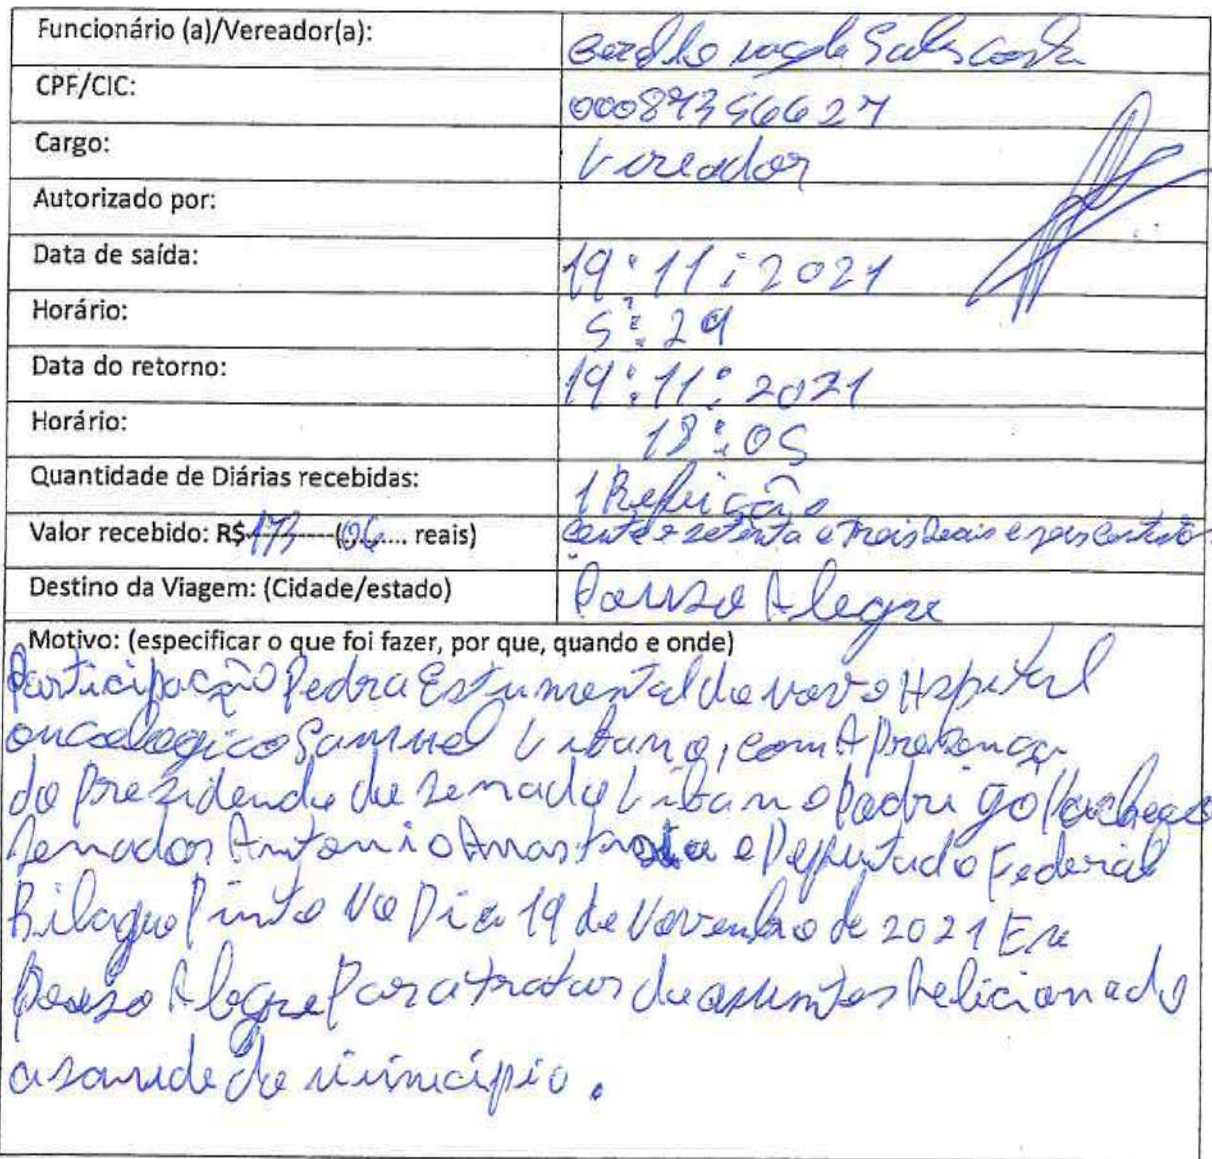 Funcionário (a)/Vereador(a): Sales Costa
CPF/CIC: 00087356627
Cargo: Vereador
Autorizado por:
Data de saída: 19:11:2021
Horário: 5:29
Data do retorno: 19:11:2021
Horário: 18:05
Quantidade de Diárias recebidas: 1 Refeição
Valor recebido: R$ 173 (06.... reais) cento e setenta e Treis Reais e seis
Destino da Viagem: (Cidade/estado) Pouso Alegre
Motivo: (especificar o que foi fazer, por que, quando e onde)
Participação Pedra Estumental do novo Hspital
oncologico Samuel Libano, com A Presença
do Presidende do senado Libano Padrigo Pacheco
Senador Antonio Anastasia e Deputado Federal
Bilaque Pinto No Dia 19 de Novembro de 2021 Em
Pouso Alegre Para tratar de assuntos Relicionado
a saude do município.